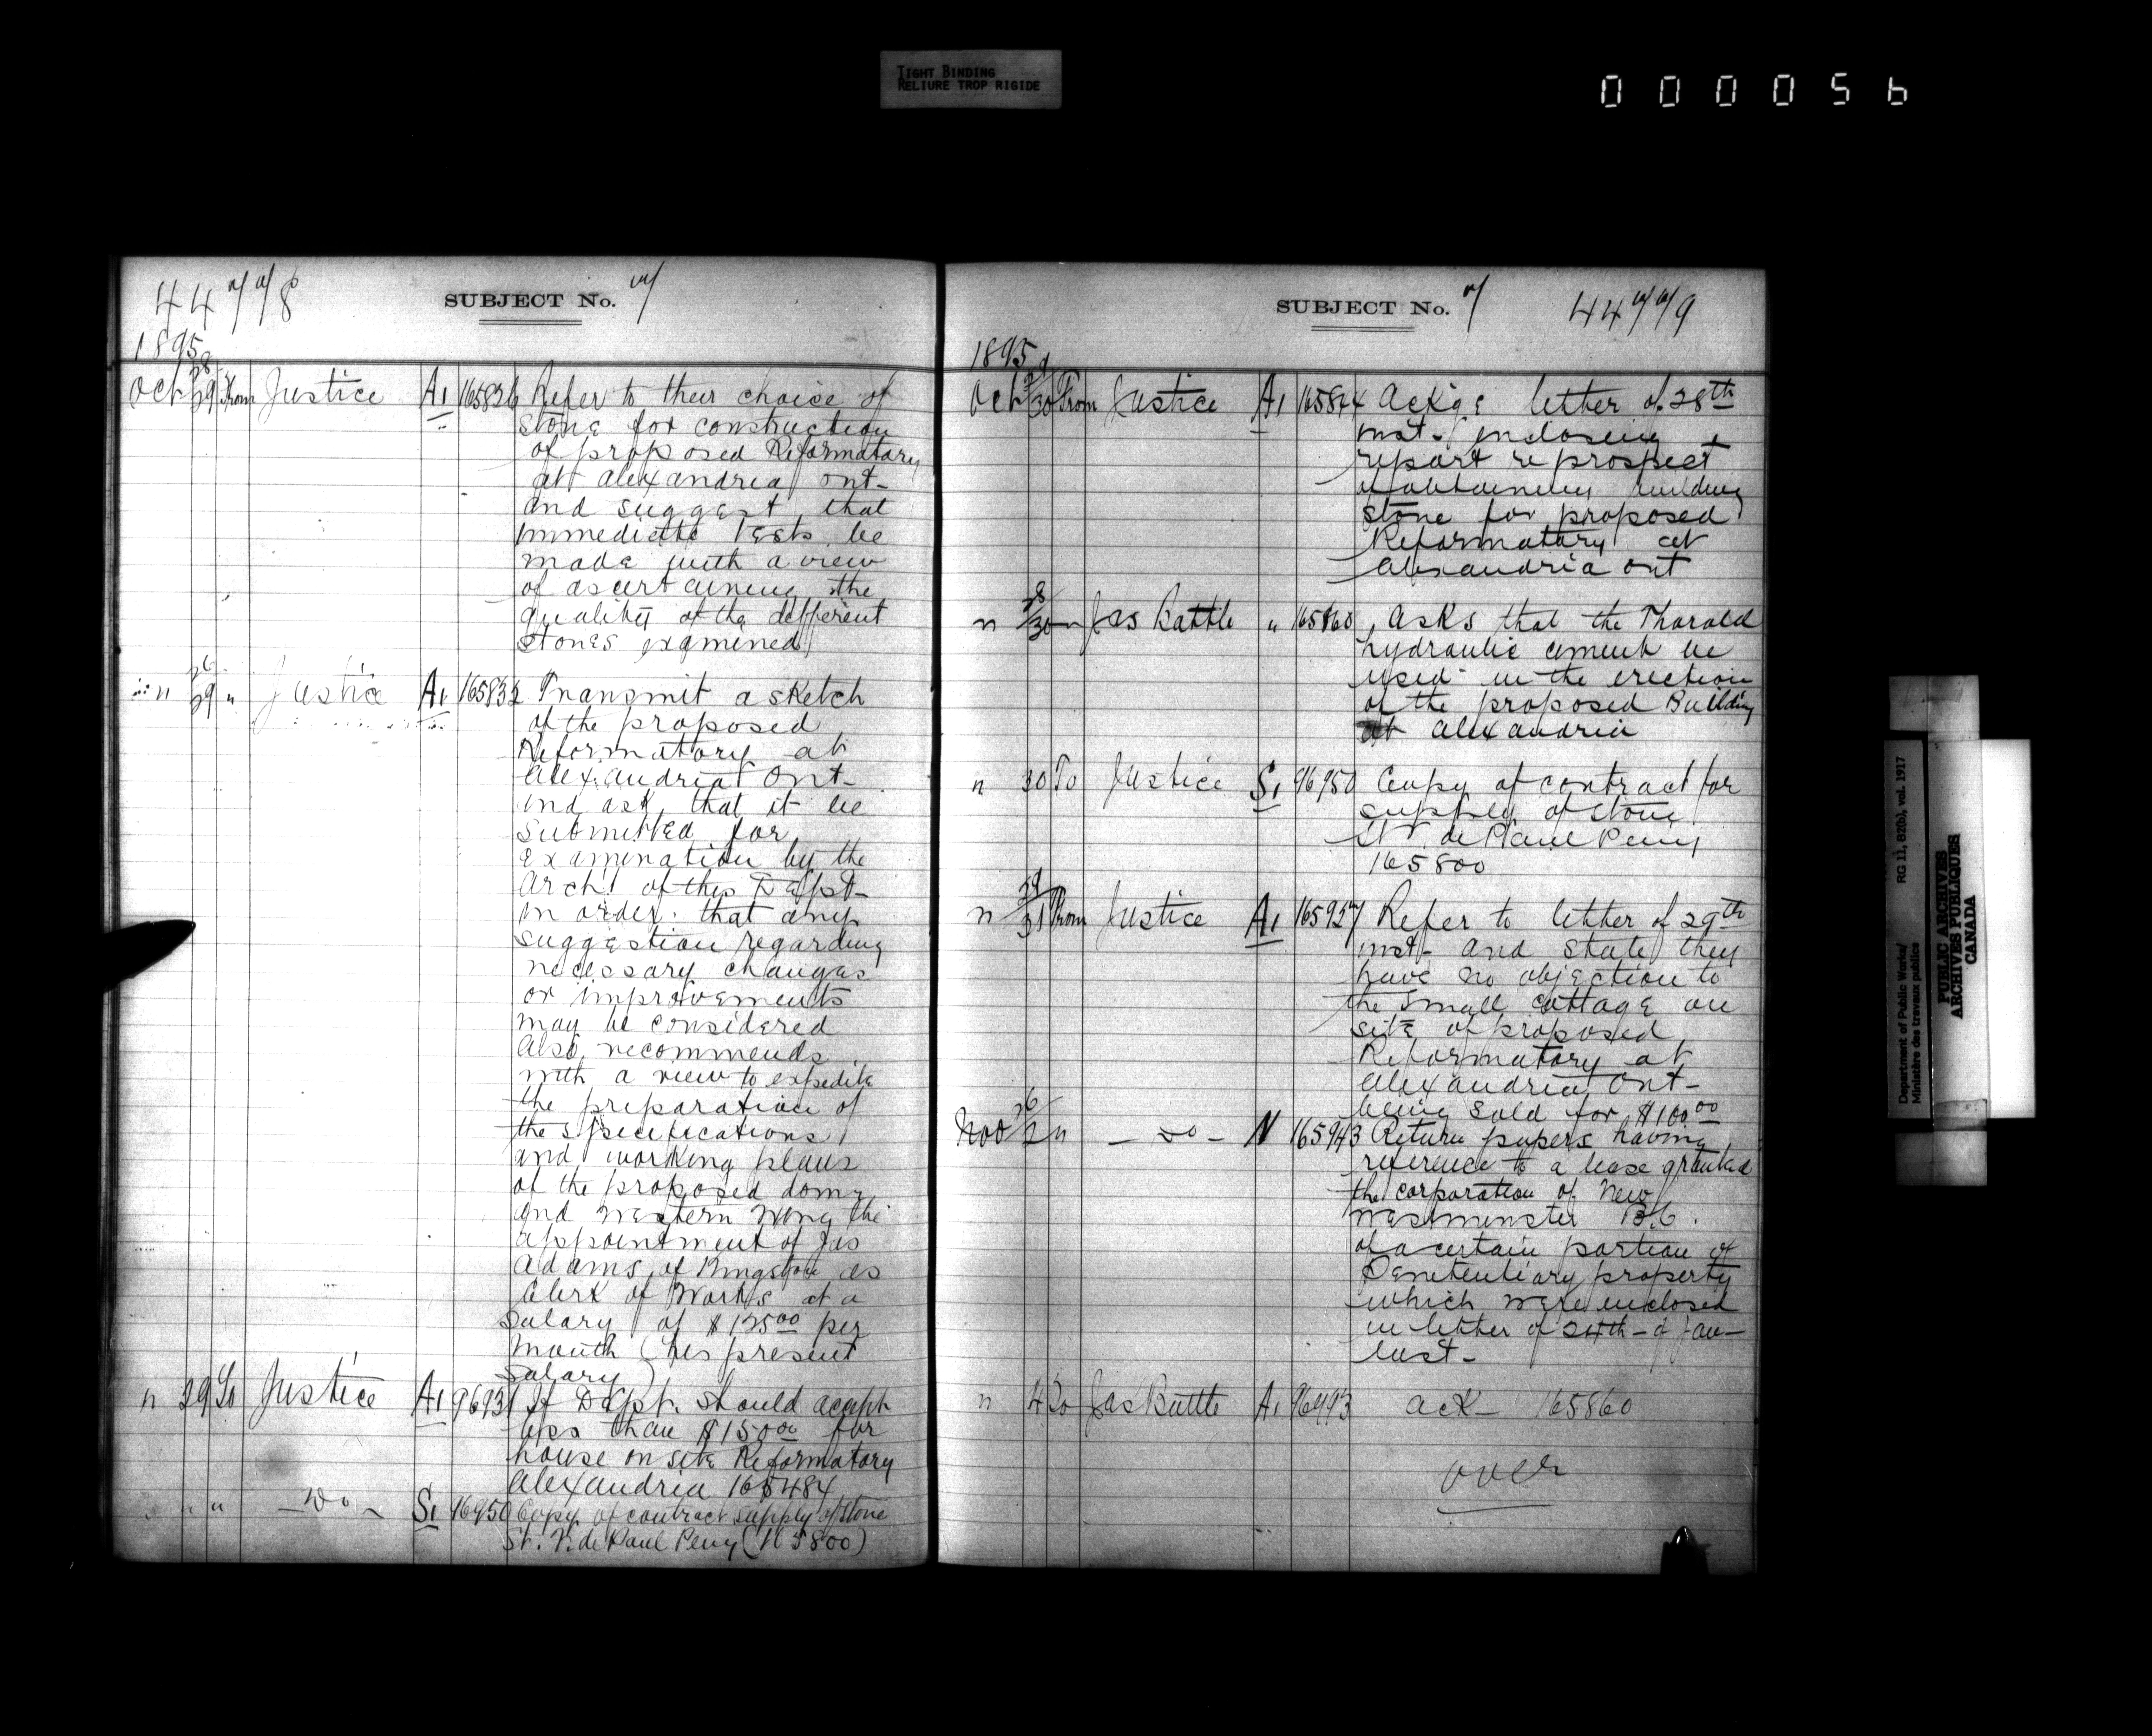 TIGHT BINDING
RELIURE TROP RIGIDE
0000056
44778
SUBJECT No. 7
1895
Oct 28/29 From Justice A1 165826 Refer to their choice of
stone for construction
of proposed Reformatory
at Alexandria Ont-
and suggest that
immediate tests be
made with a view
of ascertaining the
quality of the different
stones examined
" 26/29 " Justice A1 165832 Transmit a sketch
of the proposed
Reformatory at
Alexandria Ont-
and ask that it be
submitted for
examination by the
Arch! of this Dept-
in order that any
suggestion regarding
necessary changes
or improvements
may be considered
also recommends
with a view to expedite
the preparation of
the specifications
and working plans
of the proposed dome
and Western Wing the
appointment of Jas
Adams of Kingston as
Clerk of Works at a
Salary of $125.00 per
Month (his present
Salary)
" 29 To Justice A1 96931 If Dept. should accept
less than $150.00 for
house on site Reformatory
Alexandria 165484
" " " -Do- S1 96950 Copy of contract supply of stone
St. V. de Paul Peny (165800)
SUBJECT No. 7
44779
1895
Oct 29/30 From Justice A1 165844 Ackge letter of 28th
inst- enclosing
report re prospect
of obtaining building
stone for proposed
Reformatory at
Alexandria Ont
" 28/30 " Jas Battle " 165860 Asks that the Thorold
hydraulic cement be
used in the erection
of the proposed Building
at Alexandria
" 30 To Justice S1 96950 Copy of contract for
supply of stone
St V. de Paul Peny
165800
" 29/31 From Justice A1 165927 Refer to letter of 29th
inst- and state they
have no objection to
the small cottage on
site of proposed
Reformatory at
Alexandria Ont-
being sold for $100.00
Nov 26/2 " -Do- N 165943 Return papers having
reference to a lease granted
the corporation of New
Westminster B.C.
of a certain portion of
Penitentiary property
which were enclosed
in letter of 24th- of Jan-
last-
" 4 To Jas Battle A1 96993 ack- 165860
over
Department of Public Works/ RG 11, B2(b), vol. 1917
Ministère des travaux publics
PUBLIC ARCHIVES
ARCHIVES PUBLIQUES
CANADA